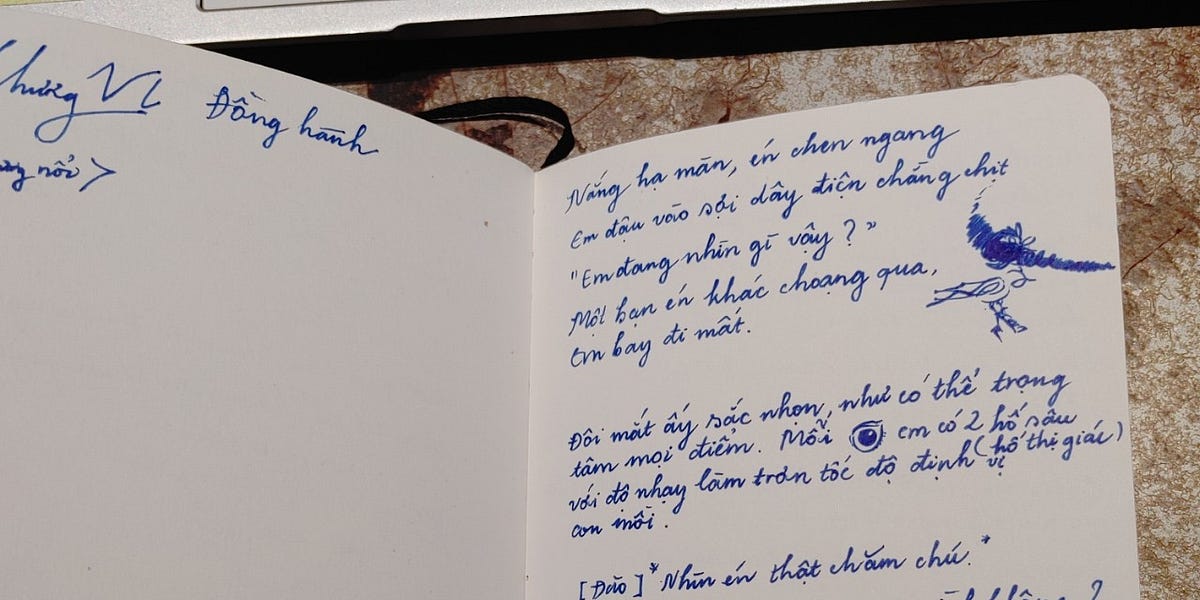 Chương VI Đồng hành
nổi>
Nắng hạ mãn, én chen ngang
Em đậu vào sợi dây điện chằng chịt
"Em đang nhìn gì vậy?"
Một bạn én khác choạng qua,
Em bay đi mất.
Đôi mắt ấy sắc nhọn, như có thể trọng
tâm mọi điểm. Mỗi em có 2 hố sâu
(hố thị giác)
với độ nhạy làm trơn tốc độ định vị
con mồi.
[Đào] *Nhìn én thật chăm chú.*